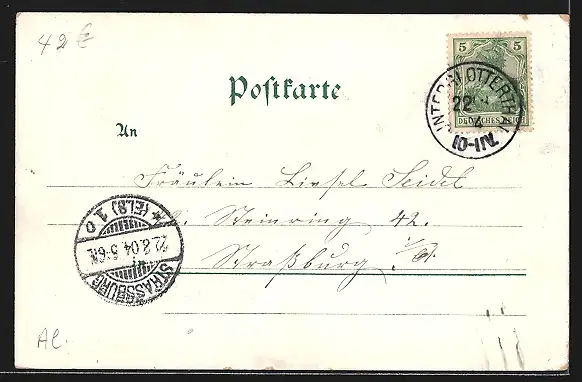 42 €
5 5
DEUTSCHES REICH
UNTERGLOTTERTHAL
22
4
10-11V.
Postkarte
An
Fräulein Liesel Seidel
Steinring 42.
Straßburg i/E.
STRASSBURG * (ELS) 1 o
22.8.04. 5-6N.
Al.